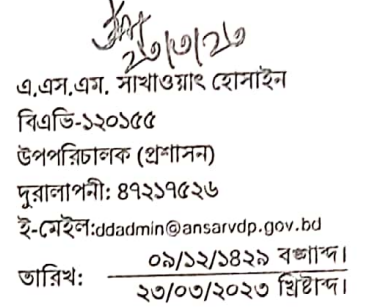 ২৩/৩/২৩
এ.এস.এম. সাখাওয়াৎ হোসাইন
বিএভি-১২০১৫৫
উপপরিচালক (প্রশাসন)
দুরালাপনী: ৪৭২১৭৫২৬
ই-মেইল:ddadmin@ansarvdp.gov.bd
তারিখ: ০৯/১২/১৪২৯ বঙ্গাব্দ।
২৩/০৩/২০২৩ খ্রিষ্টাব্দ।